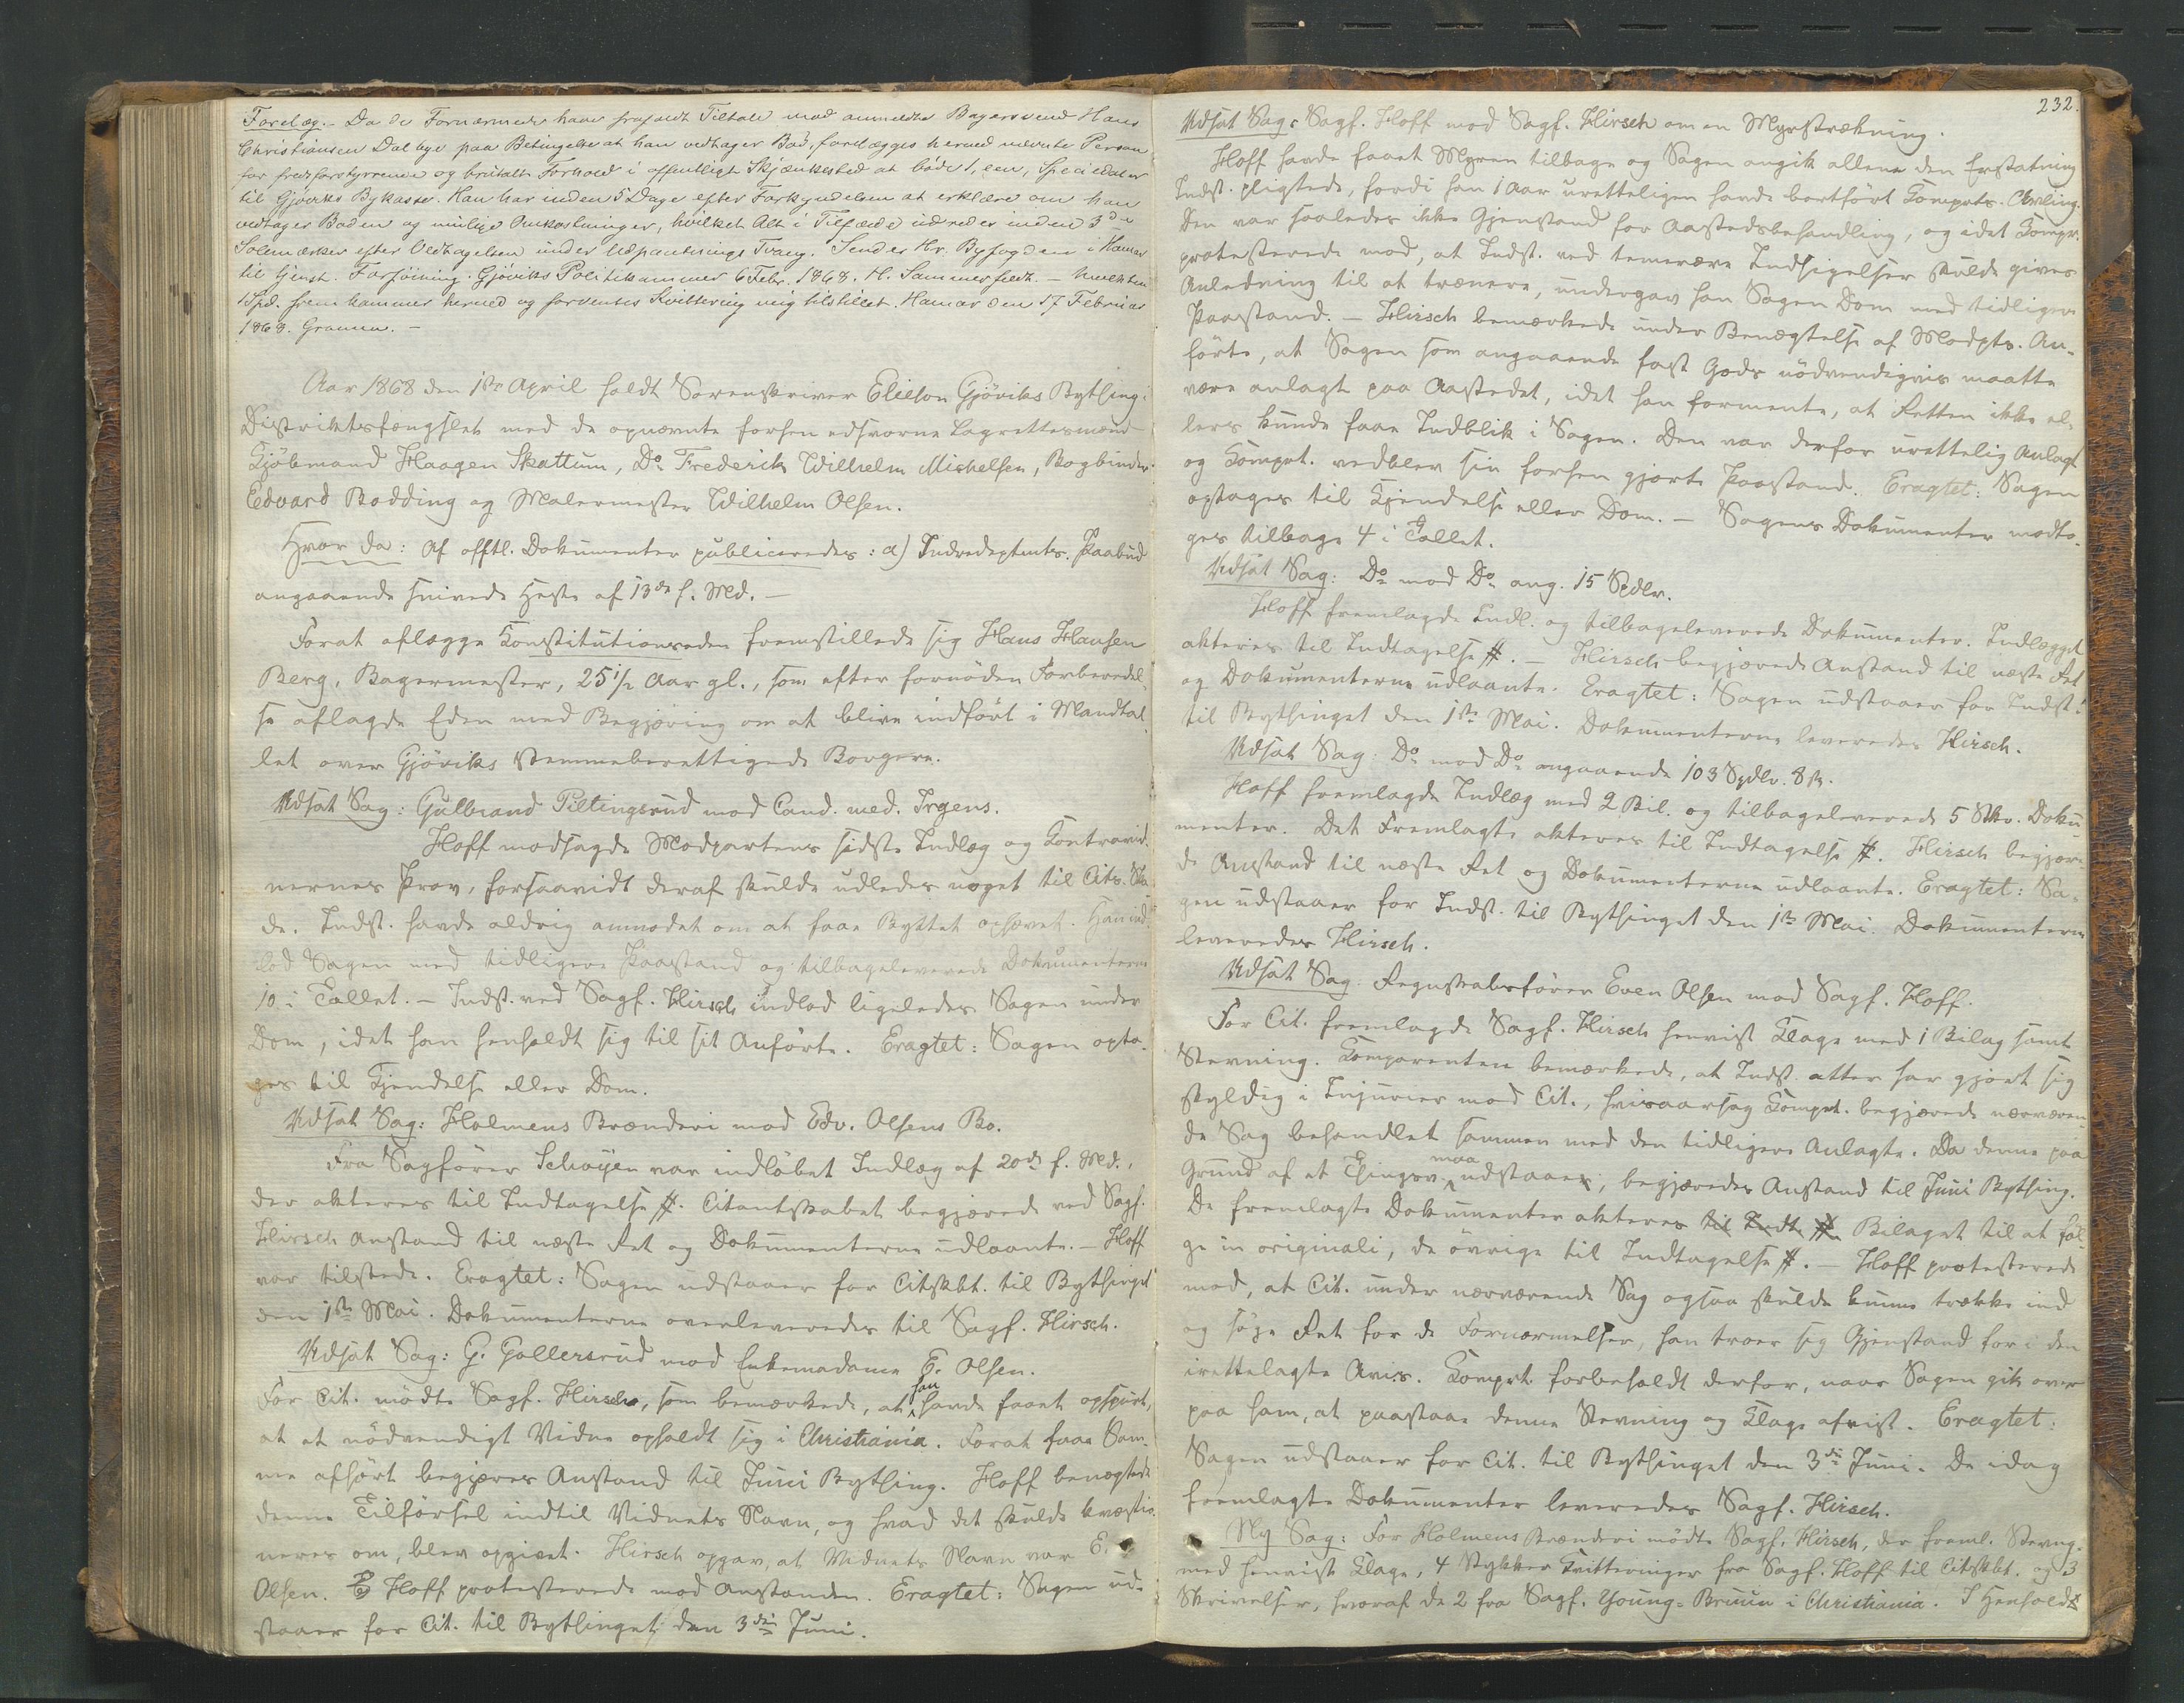 Forelæg. - Da de Fornærmede have frafaldt Tiltale mod anmeldte Bagersvend Hans
Christiansen Dalbye paa Betingelse at han vedtager Bod, forelægges herved nævnte Person
for fredsforstyrrende og brutalt Forhold i offentligt Skjænkested at bøde 1, een, Speciedaler
til Gjøviks Bykasse. Han har inden 5 Dage efter Forkyndelsen at erklære om han
vedtager Boden og mulige Omkostninger, hvilket Alt i Tilfælde udredes inden 3de
Solemærker efter Vedtagelsen under Udpantnings Tvang. Sendes Hr. Byfogden i Hamar
til tjenst. Forføining. Gjøviks Politikammer 6 Febr. 1868. H. Sommerfeldt. -
1 Spd. fremkommer herved og forventes Kvittering mig tilstillet. Hamar den 17 Februar
1868. Gramm. -
Aar 1868 den 1ste April holdt Sorenskriver Ellefsen Gjøviks Bything i
Distriktsfængslet med de opnævnte forhen edsvorne Lagrettesmænd
Kjøbmand Haagen Skattum, Do Frederik Wilhelm Michelsen, Bogbinder
Edvard Bodding og Malermester Wilhelm Olsen.
Hvor da: Af offtl. Dokumenter publiceredes: a) Indredeptmts. Paabud
angaaende snivede Heste af 13de f. Md. -
Forat aflægge Konstitutionseden fremstillede sig Hans Hansen
Berg, Bagermester, 25 1/2 Aar gl., som efter fornöden Forberedel-
se aflagde Eden med Begjæring om at blive indført i Mandtal-
let over Gjöviks stemmeberettigede Borgere.
Udsat Sag: Gulbrand Piltingsrud mod Cand. med. Irgens.
Hoff modsagde Modpartens sidste Indlæg og Kontravid-
nernes Prov, forsaavidt deraf skulde udledes noget til Cits. Ska-
de. Indst. havde aldrig anmodet om at faae Byttet ophævet. Han ind-
lod Sagen med tidligere Paastand og tilbageleverede Dokumenterne
10 i Tallet. - Indst. ved Sagf. Hirsch indlod ligeledes Sagen under
Dom, idet han henholdt sig til sit Anførte. Eragtet: Sagen opta-
ges til Kjendelse eller Dom.
Udsat Sag: Holmens Brænderi mod Edv. Olsens Bo.
Fra Sagfører Schøyen var indløbet Indlæg af 20de f. Md.,
der akteres til Indtagelse #. Citantskabet begjærede ved Sagf.
Hirsch Anstand til næste Ret og Dokumenterne udlaante. - Hoff
var tilstede. Eragtet: Sagen udstaaer for Citskbt. til Bythinget
den 1ste Mai. Dokumenterne overleveredes til Sagf. Hirsch.
Udsat Sag: G. Gollersrud mod Enkemadame E. Olsen.
For Cit. mödte Sagf. Hirsch, som bemærkede, at han havde faaet opspurt,
at et nödvendigt Vidne opholdt sig i Christiania. Forat faae Sam-
me afhört begjæres Anstand til Juni Bything. Hoff benægtede
denne Tilførsel indtil Vidnets Navn, og hvad det skulde kvæstio-
neres om, blev opgivet. Hirsch opgav, at Vidnets Navn var E.
Olsen. Hoff protesterede mod Anstanden. Eragtet: Sagen ud-
staaer for Cit. til Bythinget den 3die Juni.
232.
Udsat Sag: Sagf. Hoff mod Sagf. Hirsch om en Myrstrækning.
Hoff havde faaet Myren tilbage og Sagen angik allene den Erstatning
Indst. pligtede, fordi han 1 Aar uretteligen havde bortfört Komprts. Avling.
Den var saaledes ikke Gjenstand for Aastedsbehandling, og idet Kompr.
protesterede mod, at Indst. ved temerære Indsigelser skulde gives
Anledning til at trænere, undergav han Sagen Dom med tidligere
Paastand. - Hirsch bemærkede under Benægtelse af Modpts. An-
förte, at Sagen som angaaende fast Gods nödvendigvis maatte
være anlagt paa Aastedet, idet han formente, at Retten ikke el-
lers kunde faae Indblik i Sagen. Den var derfor urettelig anlagt
og Komprt. vedblev sin forhen gjorte Paastand. Eragtet: Sagen
optages til Kjendelse eller Dom. - Sagens Dokumenter modto-
ges tilbage 4 i Tallet.
Udsat Sag: Do mod Do ang. 15 Spdlr.
Hoff fremlagde Indl. og tilbageleverede Dokumenter. Indlægget
akteres til Indtagelse #. - Hirsch begjærede Anstand til næste Ret
og Dokumenterne udlaante. Eragtet: Sagen udstaaer for Indst.
til Bythinget den 1ste Mai. Dokumenterne leveredes Hirsch.
Udsat Sag: Do mod Do angaaende 103 Spdlr. 8 ß.
Hoff fremlagde Indlæg med 2 Bil. og tilbageleverede 5 Stkr. Doku-
menter. Det Fremlagte akteres til Indtagelse #. Hirsch begjære-
de Anstand til næste Ret og Dokumenterne udlaante. Eragtet: Sa-
gen udstaaer for Indst. til Bythinget den 1ste Mai. Dokumenterne
leveredes Hirsch.
Udsat Sag: Regnskabsfører Even Olsen mod Sagf. Hoff.
For Cit. fremlagde Sagf. Hirsch henvist Klage med 1 Bilag samt
Stevning. Komparenten bemærkede, at Indst. atter har gjort sig
skyldig i Injurier mod Cit., hvisaarsag Komprt. begjærede nærværen-
de Sag behandlet sammen med den tidligere Anlagte. Da denne paa
Grund af et Thingsv. maa udstaaes, begjæredes Anstand til Juni Bything.
De fremlagte Dokumenter akteres til Indt. # Bilaget til at føl-
ge in originali, de övrige til Indtagelse #. - Hoff protesterede
mod, at Cit. under nærværende Sag ogsaa skulde kunne trække ind
og søge Ret for de Fornærmelser, han troer sig Gjenstand for i den
irettelagte Avis. Komprt. forbeholdt derfor, naar Sagen gik over
paa ham, at paastaae denne Stevning og Klage afvist. Eragtet:
Sagen udstaaer for Cit. til Bythinget den 3die Juni. De idag
fremlagte Dokumenter leveredes Sagf. Hirsch.
Ny Sag: For Holmens Brænderi mödte Sagf. Hirsch, der freml. Stevng.
med henvist Klage, 4 Stykker Kvitteringer fra Sagf. Hoff til Citskbt. og 3
Skrivelser, hvoraf de 2 fra Sagf. Young-Bruun i Christiania. I Henhold